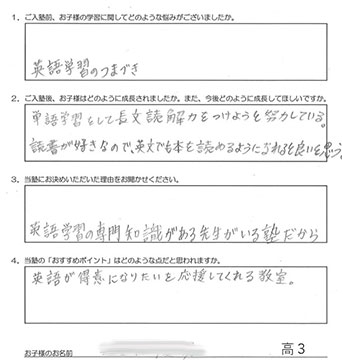 1. ご入塾前、お子様の学習に関してどのような悩みがございましたか。
英語学習のつまづき
2. ご入塾後、お子様はどのように成長されましたか。また、今後どのように成長してほしいですか。
単語学習をして長文読解力をつけようと努力している。
読書が好きなので、英文でも本を読めるようになれると良いと思う。
3. 当塾にお決めいただいた理由をお聞かせください。
英語学習の専門知識がある先生がいる塾だから
4. 当塾の「おすすめポイント」はどのような点だと思われますか。
英語が得意になりたいを応援してくれる教室。
お子様のお名前
高3